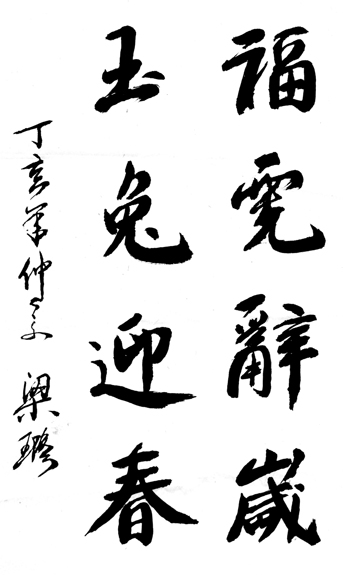 福虎辭嵗
玉兔迎春
丁亥年仲冬 梁